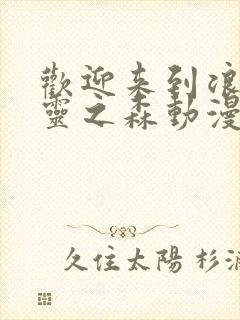 歡迎来到浪
靈之森動漫
久住太陽 杉浦